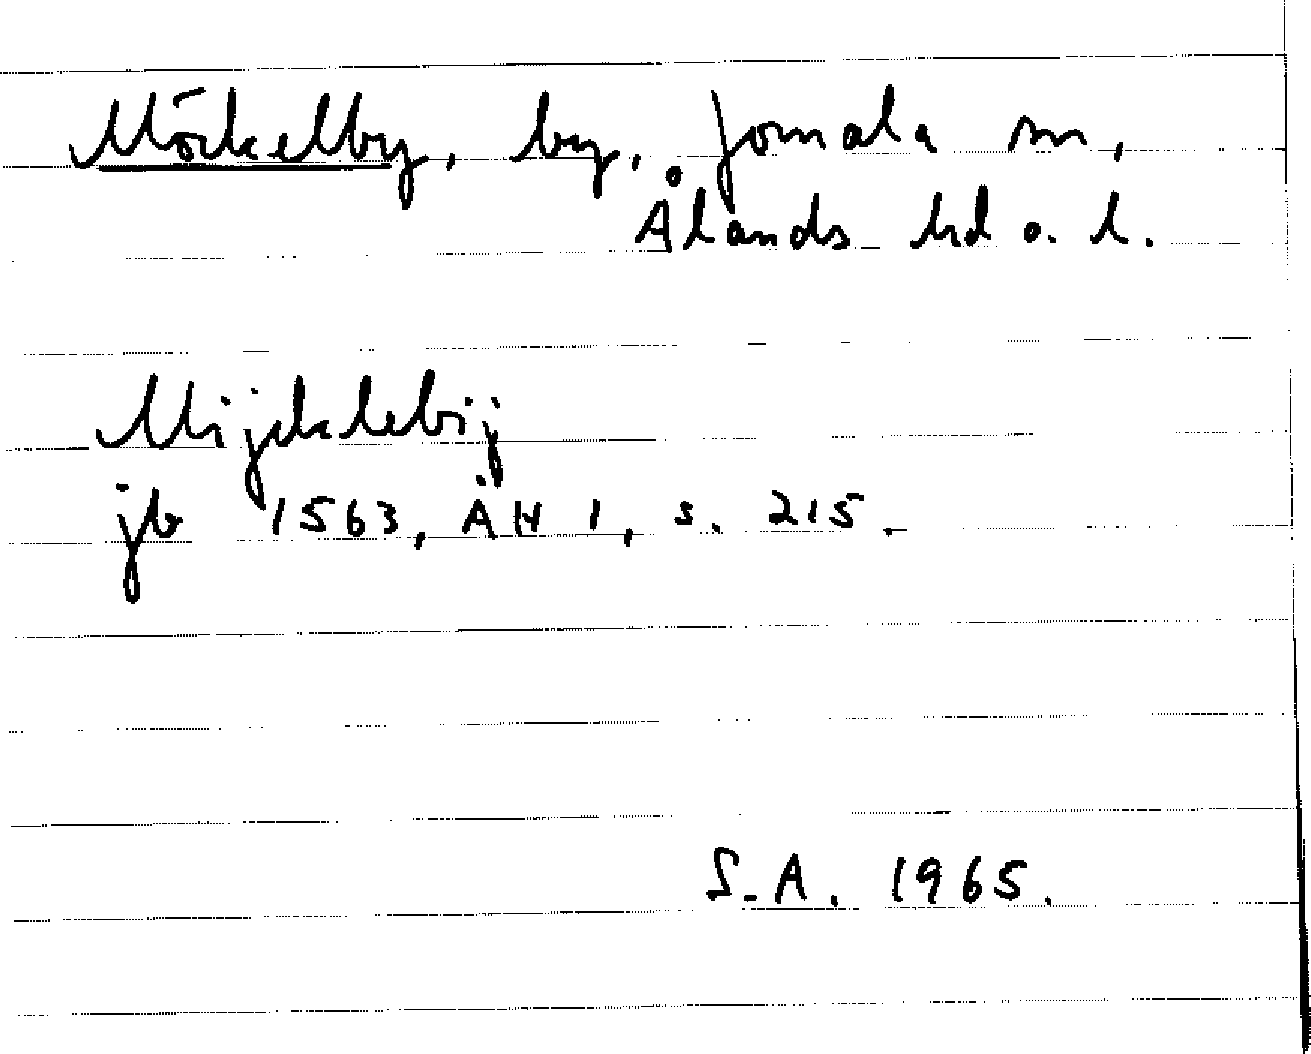 Möckelby, by, Jomala sn,
Ålands hd o. l.
Mijcklebij
jb 1563, ÄH 1, s. 215.
S.A. 1965.